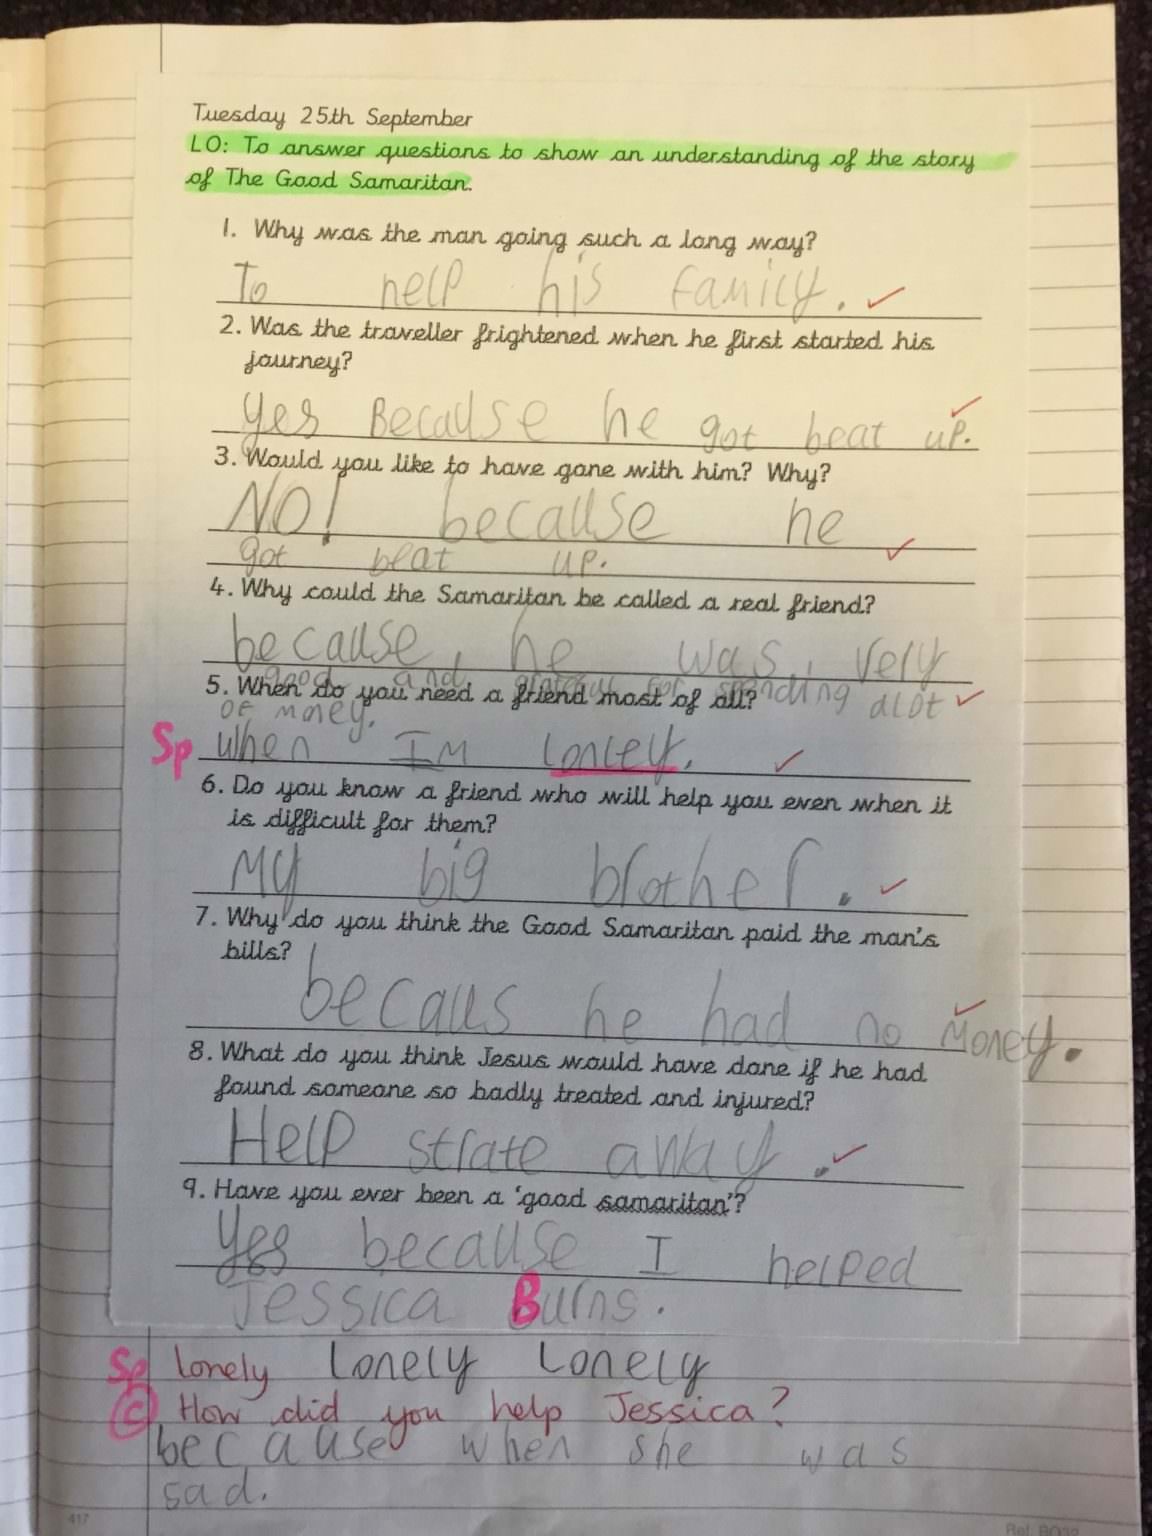 Tuesday 25th September
LO: To answer questions to show an understanding of the story
of The Good Samaritan.
1. Why was the man going such a long way?
To help his family.
2. Was the traveller frightened when he first started his
journey?
yes Because he got beat up.
3. Would you like to have gone with him? Why?
NO! because he
got beat up.
4. Why could the Samaritan be called a real friend?
because he was very
good and grateful for spending alot
5. When do you need a friend most of all?
of money.
Sp when Im lonley.
6. Do you know a friend who will help you even when it
is difficult for them?
My big brother.
7. Why do you think the Good Samaritan paid the man's
bills?
becaus he had no money.
8. What do you think Jesus would have done if he had
found someone so badly treated and injured?
Help strate away.
9. Have you ever been a 'good samaritan'?
Yes because I helped
Jessica Burns.
Sp lonely Lonely Lonely
C How did you help Jessica?
because when she was
sad.
417